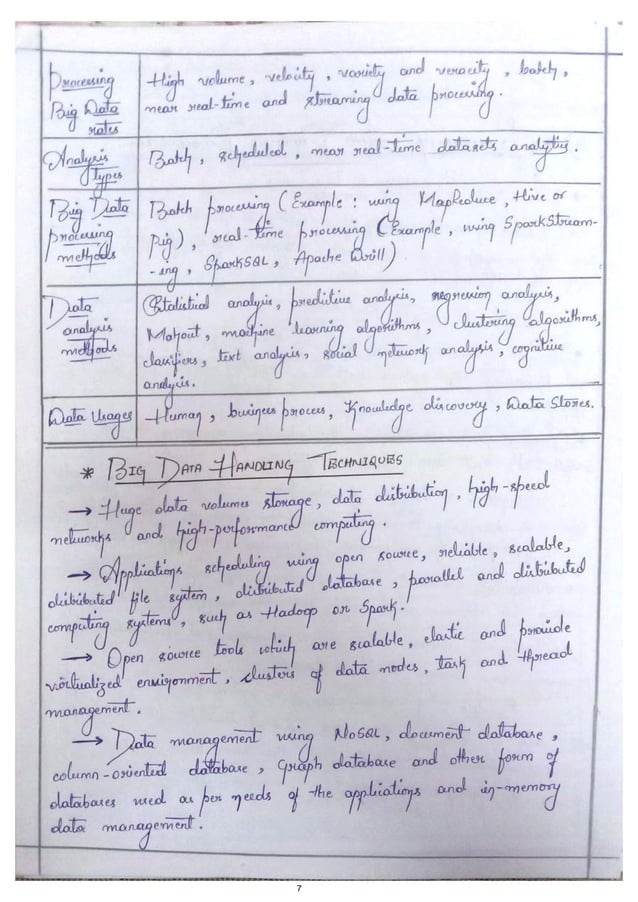 Processing High volume, velocity, variety and veracity, batch,
Big Data near real-time and streaming data processing.
rates
Analysis Batch, scheduled, near real-time datasets analytics.
types
Big Data Batch processing (Example: using MapReduce, Hive or
processing Pig), real-time processing (Example, using SparkStream-
methods -ing, SparkSQL, Apache Drill)
Data Statistical analysis, predictive analysis, regression analysis,
analysis Mahout, machine learning algorithms, clustering algorithms,
methods classifiers, text analysis, social network analysis, cognitive
analysis.
Data Usages Human, business process, Knowledge discovery, Data Stores.
* BIG DATA HANDLING TECHNIQUES
→ Huge data volumes storage, data distribution, high-speed
networks and high-performance computing.
→ Applications scheduling using open source, reliable, scalable,
distributed file system, distributed database, parallel and distributed
computing systems, such as Hadoop or Spark.
→ Open source tools which are scalable, elastic and provide
virtualized environment, clusters of data nodes, task and thread
management.
→ Data management using NoSQL, document database,
column-oriented database, Graph database and other form of
databases used as per needs of the applications and in-memory
data management.
7